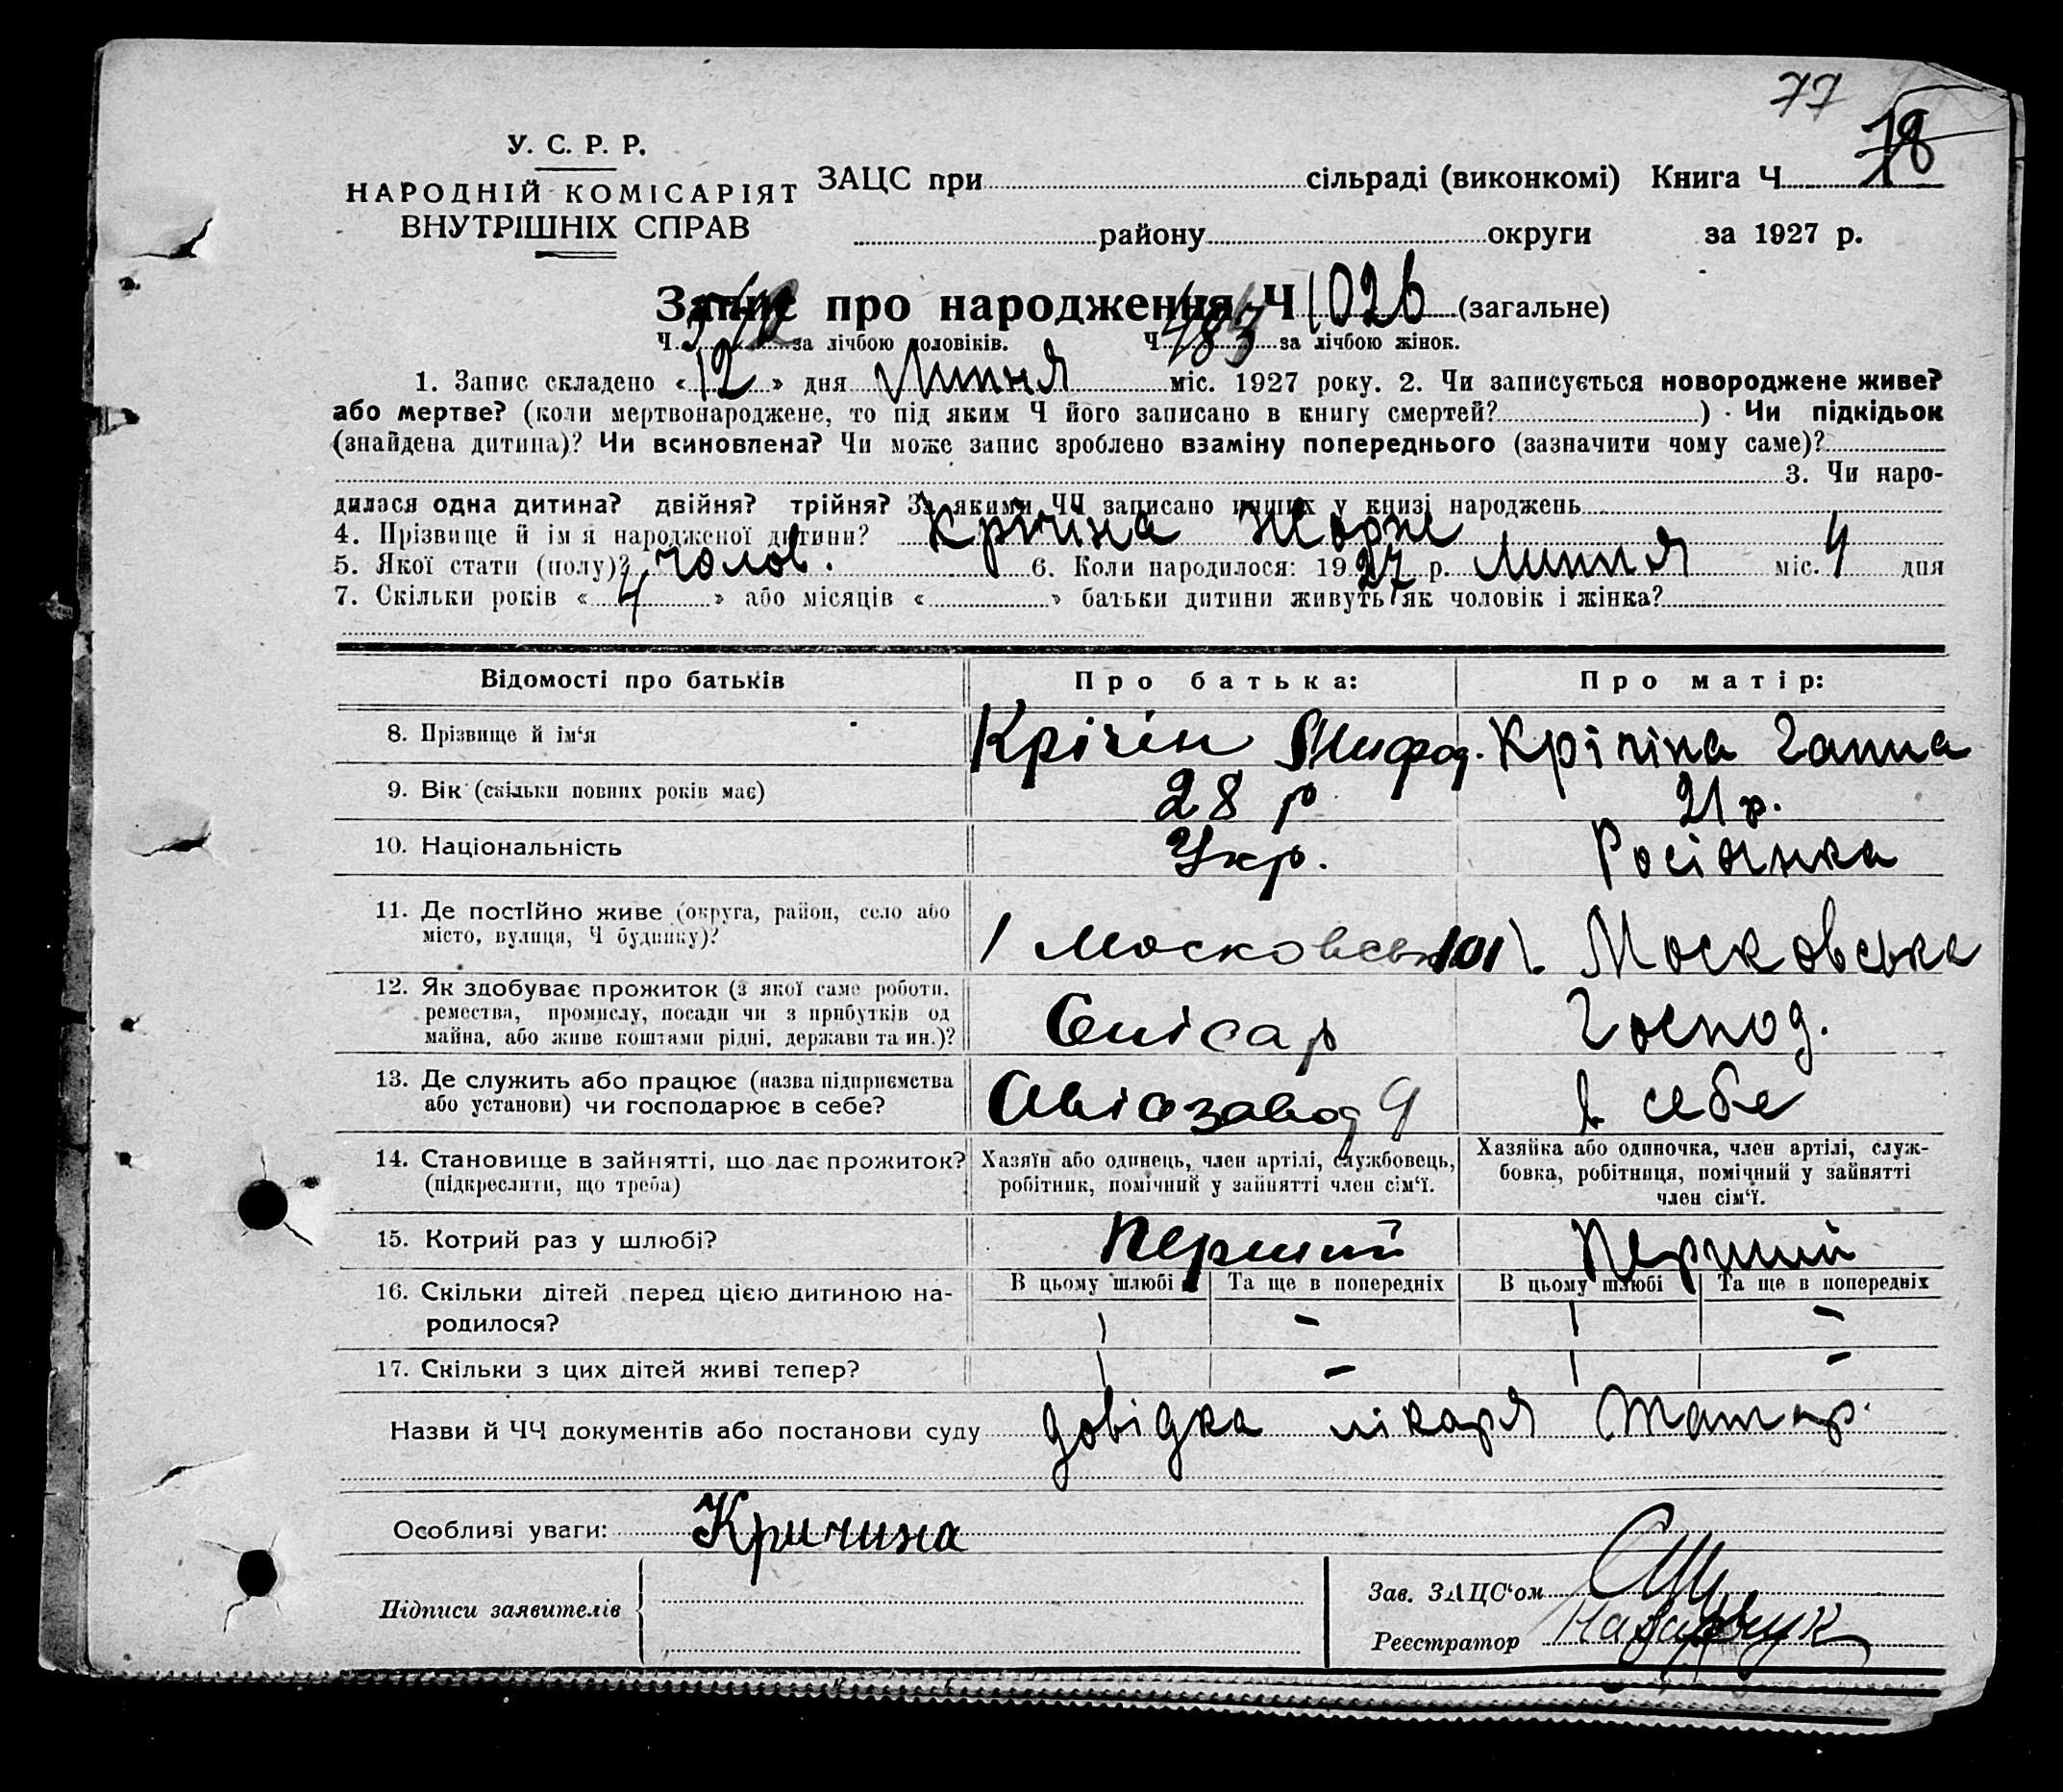 77
18
У. С. Р. Р.
НАРОДНІЙ КОМІСАРІЯТ
ВНУТРІШНІХ СПРАВ
ЗАЦС при сільраді (виконкомі) Книга Ч
району округи за 1927 р.
Запис про народження Ч 1026 (загальне)
Ч за лічбою чоловіків. Ч 483 за лічбою жінок.
1. Запис складено «12» дня Липня міс. 1927 року. 2. Чи записується новороджене живе?
або мертве? (коли мертвонароджене, то під яким Ч його записано в книгу смертей? ) Чи підкідьок
(знайдена дитина)? Чи всиновлена? Чи може запис зроблено взаміну попереднього (зазначити чому саме)?
3. Чи наро-
дилася одна дитина? двійня? трійня? За якими ЧЧ записано инших у книзі народжень
4. Прізвище й ім'я народженої дитини? Крічіна Жорж
5. Якої стати (полу)? чолов. 6. Коли народилося: 1927 р. Липня міс. 4 дня
7. Скільки років «4» або місяців « » батьки дитини живуть як чоловік і жінка?
Відомості про батьків Про батька: Про матір:
8. Прізвище й ім'я Крічін Мифод. Крічіна Ганна
9. Вік (скільки повних років має) 28 р 21 р.
10. Національність Укр. Росіянка
11. Де постійно живе (округа, район, село або
місто, вулиця, Ч будинку)? 1 Московськ 101 1. Московська
12. Як здобуває прожиток (з якої саме роботи,
ремества, промислу, посади чи з прибутків од
майна, або живе коштами рідні, держави та ин.)? Слісар Господ.
13. Де служить або працює (назва підприємства
або установи) чи господарює в себе? Авіозавод 9 в себе
14. Становище в зайнятті, що дає прожиток?
(підкреслити, що треба)
Хазяїн або одинець, член артілі, службовець,
робітник, помічний у зайнятті член сім'ї.
Хазяйка або одиночка, член артілі, служ-
бовка, робітниця, помічний у зайнятті
член сім'ї.
15. Котрий раз у шлюбі? Перший Перший
16. Скільки дітей перед цією дитиною на-
родилося?
В цьому шлюбі Та ще в попередніх В цьому шлюбі Та ще в попередніх
1 - 1 -
17. Скільки з цих дітей живі тепер? 1 - 1 -
Назви й ЧЧ документів або постанови суду довідка лікаря
Особливі уваги: Кричина
Підписи заявителів
Зав. ЗАЦС'ом
Реєстратор Назарчук